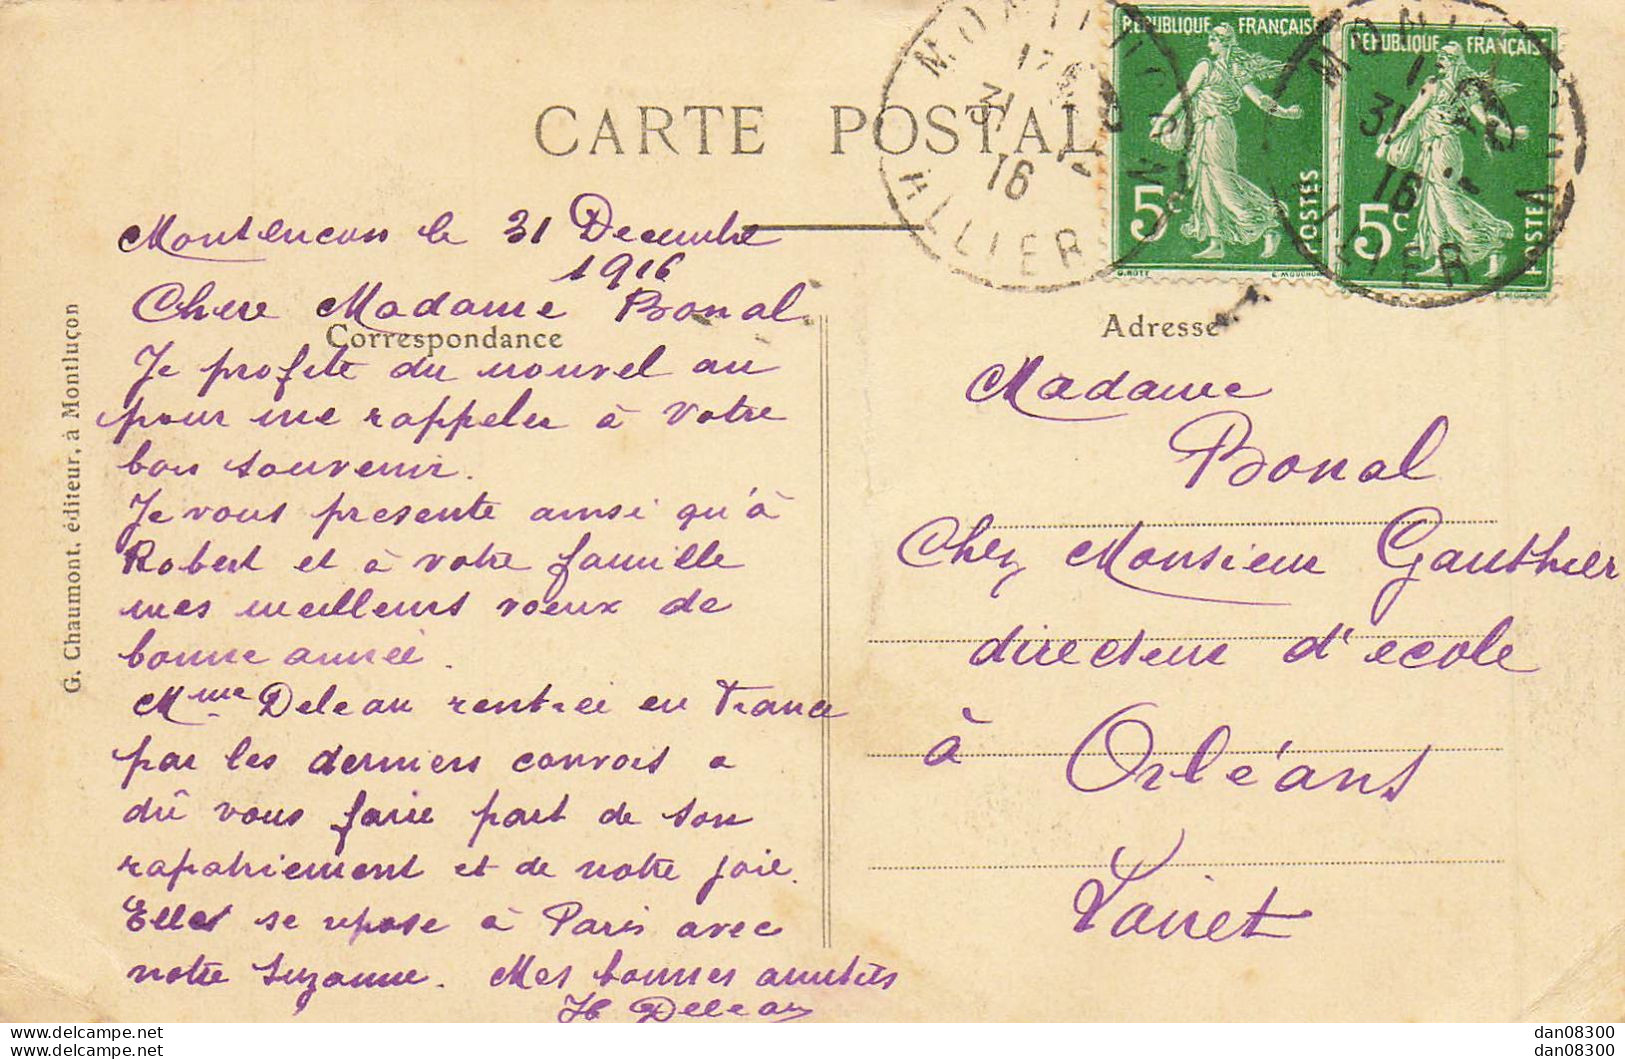 CARTE POSTALE
RÉPUBLIQUE FRANÇAISE
5c
POSTES
RÉPUBLIQUE FRANÇAISE
5c
POSTES
31
16
ALLIER
31
16
ALLIER
Montlucon le 31 Decembre
1916
Correspondance
Chere Madame Bonal
Je profite du nouvel an
pour me rappeler à votre
bon souvenir.
Je vous presente ainsi qu'à
Robert et à votre famille
mes meilleurs voeux de
bonne année.
Mme Deleau rentrée en France
par les derniers convois a
dû vous faire part de son
rapatriement et de notre joie.
Elle se repose à Paris avec
notre Suzanne. Mes bonnes amitiés
H Deleau
Adresse
Madame
Bonal
Chez Monsieur Gauthier
directeur d'ecole
à Orléans
Loiret
G. Chaumont, éditeur, à Montluçon
dan08300
dan08300
www.delcampe.net
www.delcampe.net